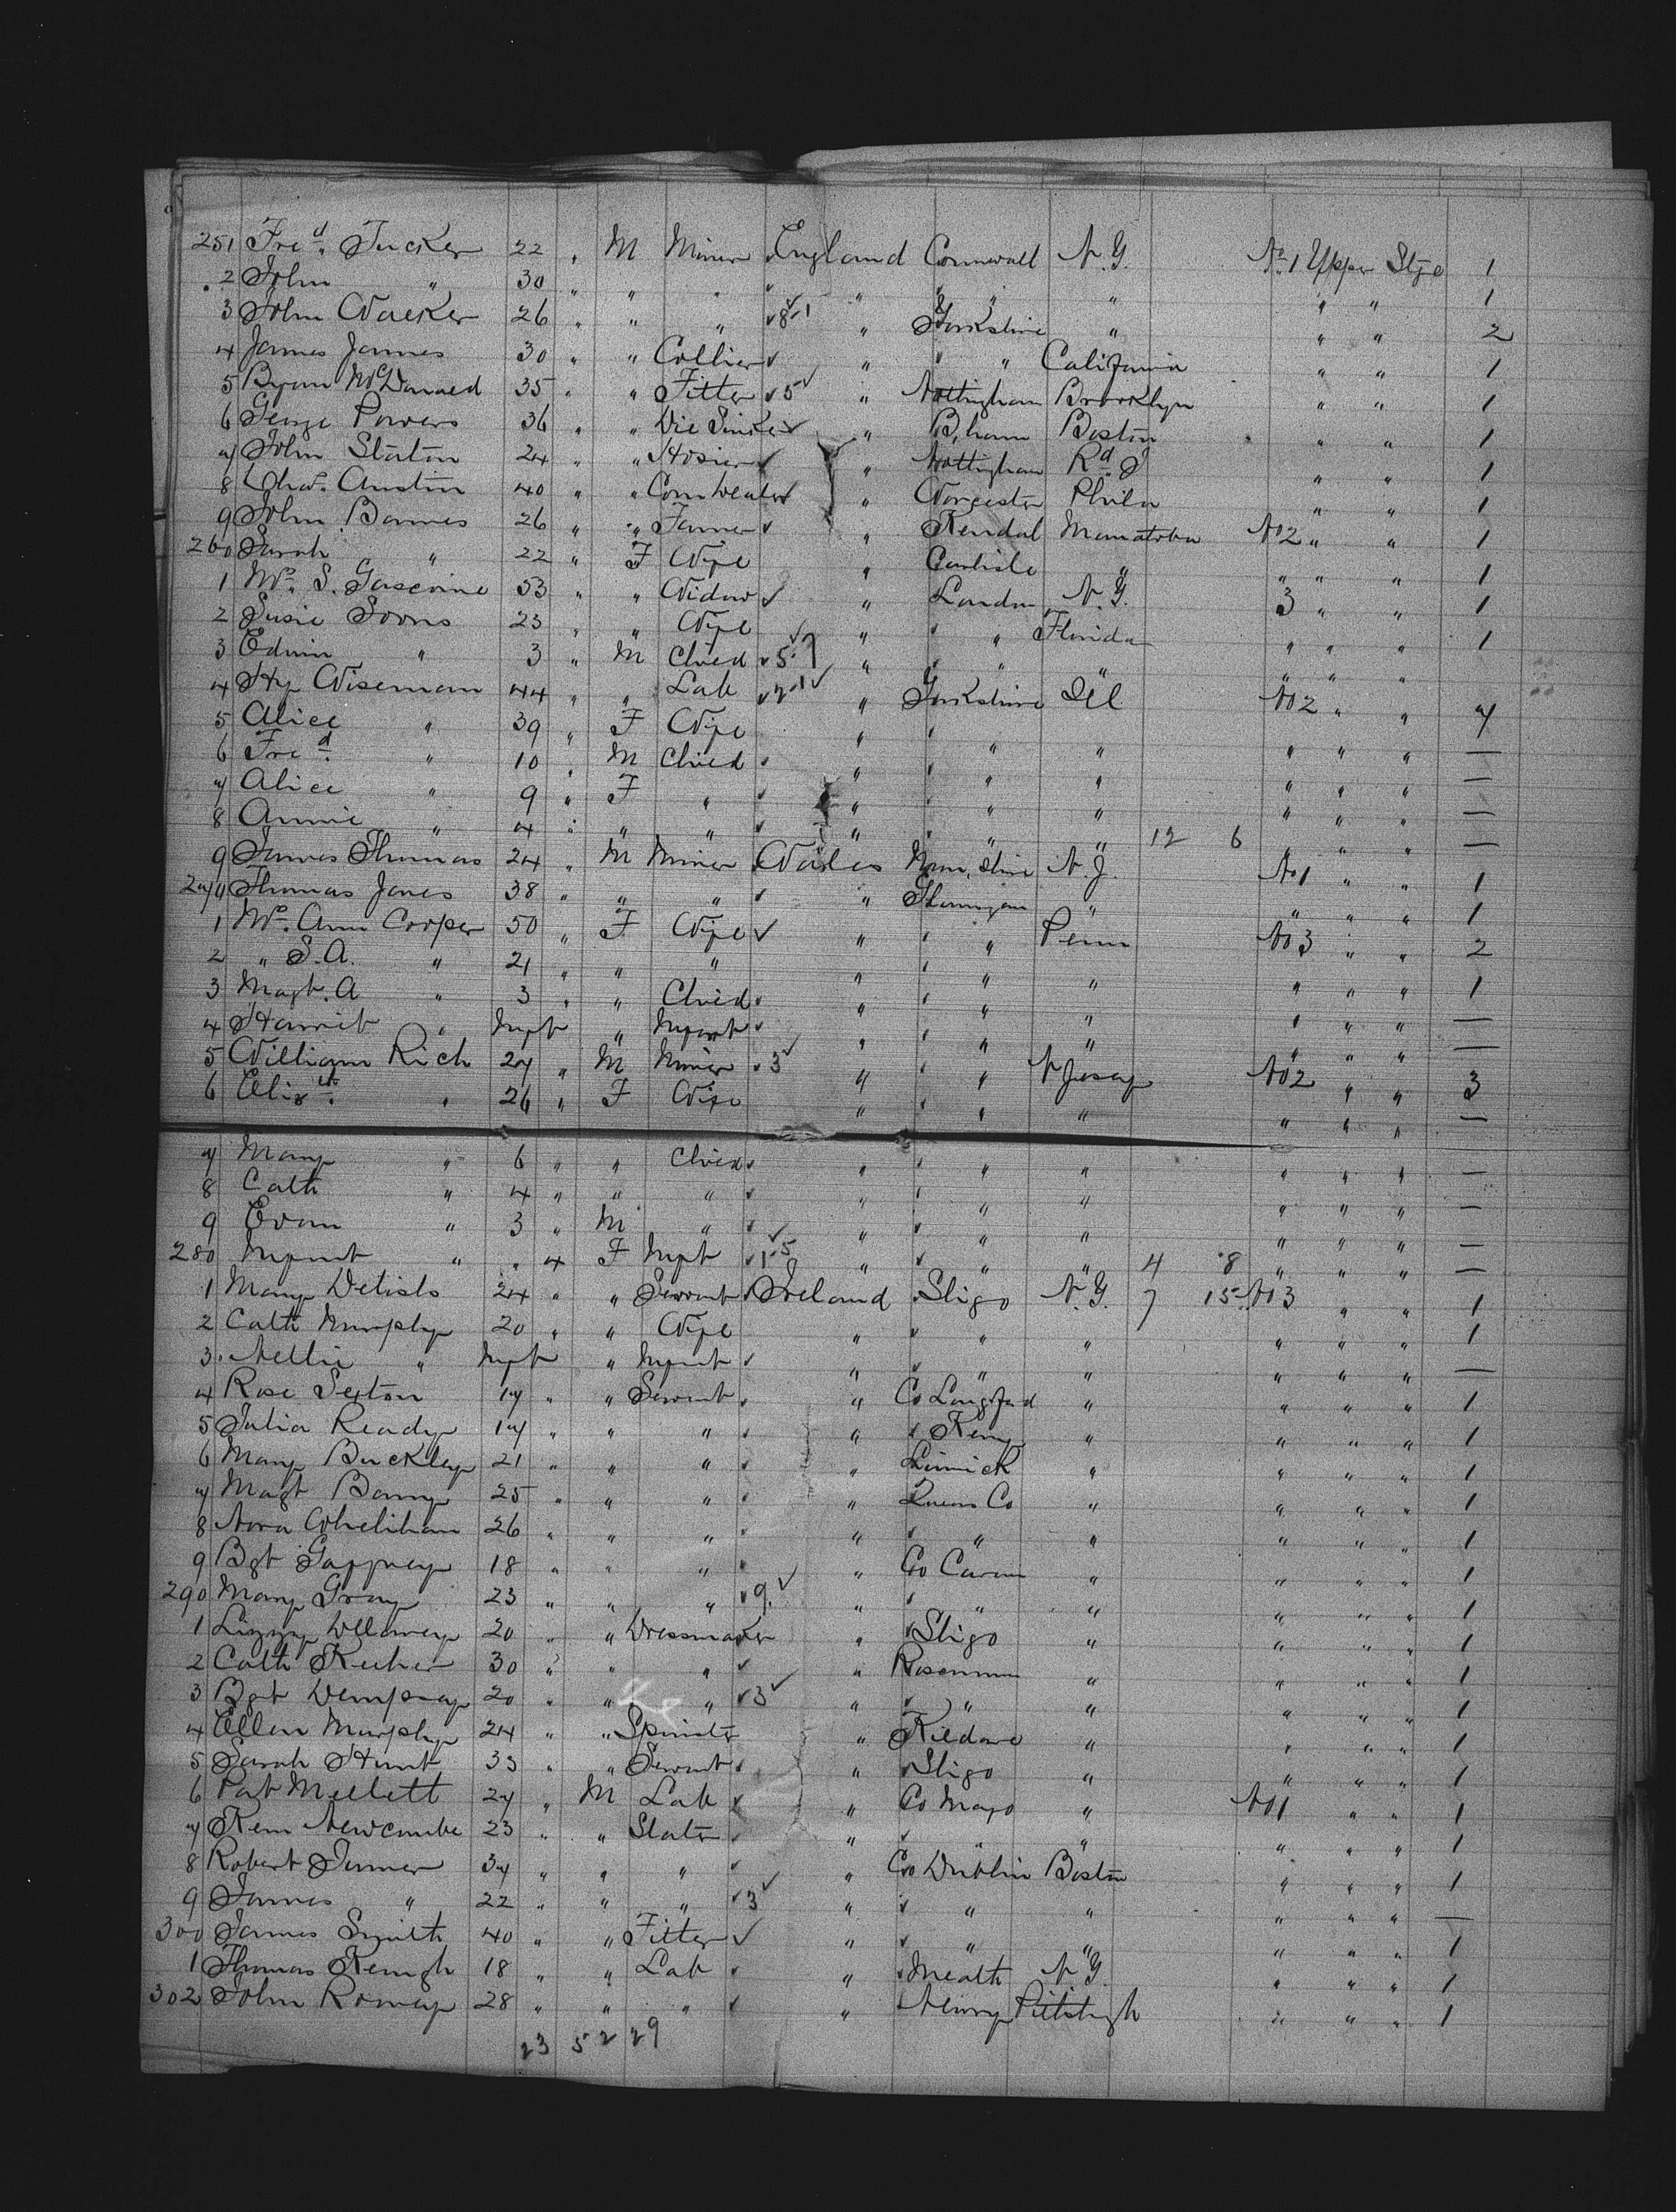 251 Fred. Tucker 22 " M Miner England Cornwall N.Y. No 1 Upper Stge 1
2 John " 30 " " " " " " " " " 1
3 John Walker 26 " " " 8-1 " Yorkshire " " " 2
4 James James 30 " " Collier " " " California " " 1
5 Byran McDonald 35 " " Fitter 5 " Nottingham Brooklyn " " 1
6 George Powers 36 " " Die Sinker " B,ham Boston " " 1
7 John Staton 24 " " Hosier " Nottingham " " 1
8 Chas. Austin 40 " " Corn Dealer " Worcester Phila " " 1
9 John Barnes 26 " " Farmer " Kendal Manatoba No 2 " " 1
260 Sarah " 22 " F Wife " Carlisle " " " " 1
1 Mrs. S. Gascoine 53 " " Widow " London N.Y. 3 " " 1
2 Susie Soons 23 " " Wife " " " Florida " " " 1
3 Edwin " 3 " M Child 5-7 " " " " " " "
4 Hy Wiseman 44 " " Lab 2-1 " Yorkshire Del No 2 " " 7
5 Alice " 39 " F Wife " " " " " " " —
6 Fred. " 10 " M Child " " " " " " " —
7 Alice " 9 " F " " " " " " " " —
8 Annie " 4 " " " " " " " 12 6 " " " —
9 James Thomas 24 " M Miner Wales Mon,shire N.J. No 1 " " 1
270 Thomas Jones 38 " " " " Glamorgan " " " " 1
1 Mrs. Ann Cooper 50 " F Wife " " " Penn No 3 " " 2
2 " S.A. " 21 " " " " " " " " " " 1
3 Magt. A " 3 " " Child " " " " " " " —
4 Harriet " Inft " Infant " " " " " " " —
5 William Rich 27 " M Miner 3 " " " N Jersey No 2 " " 3
6 Elizth. " 26 " F Wife " " " " " " " —
7 Mary " 6 " " Child " " " " " " " —
8 Cath " 4 " " " " " " " " " " —
9 Evan " 3 " M " " " " " " " " —
280 Infant " " 4 F Inft 1-5 " " " " 4 8 " " " —
1 Mary 24 " " Servant Ireland Sligo N.Y. 7 15 No 3 " " 1
2 Cath Murphy 20 " " Wife " " " " " " " 1
3 Nellie " Inft " Infant " " " " " " " —
4 Rose Sexton 17 " " Servant " Co Longford " " " " 1
5 Julia Ready 17 " " " " " Kerry " " " " 1
6 Mary Buckley 21 " " " " Limrick " " " " 1
7 Magt Barry 25 " " " " Queens Co " " " " 1
8 Nora Whelihan 26 " " " " " " " " " " 1
9 Bgt Gaffney 18 " " " " Co Cavan " " " " 1
290 Mary Gray 23 " " " 9. " " " " " " " 1
1 Lizzy 20 " " Dressmaker " Sligo " " " " 1
2 Cath 30 " " " " Roscommon " " " " 1
3 Bgt Dempsey 20 " " " 3 " " " " " " " 1
4 Ellen Murphy 24 " " Spinster " Kildare " " " " 1
5 Sarah Hunt 33 " " Servant " Sligo " " " " 1
6 Pat Mellett 27 " M Lab " Co Mayo " No 1 " " 1
7 Newcombe 23 " " Slater " " " " " " " 1
8 Robert Turner 37 " " " " Co Dublin Boston " " " 1
9 James " 22 " " " 3 " " " " " " " —
300 James Smith 40 " " Fitter " " " " " " " 1
1 Thomas Keough 18 " " Lab " Meath N.Y. " " " 1
302 John 28 " " " " Newry Pittsbrgh " " " 1
23 5 2 29